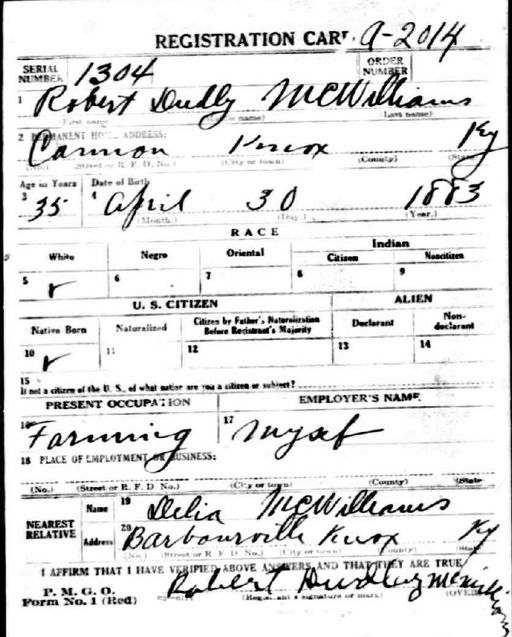 REGISTRATION CARD 9-2014
SERIAL NUMBER 1304 ORDER NUMBER
1 Robert Dudly McWilliams
(First name) (Middle name) (Last name)
2 PERMANENT HOME ADDRESS:
Cannon Knox Ky
(No.) (Street or R. F. D. No.) (City or town) (County) (State)
Age in Years Date of Birth
3 35 4 April 30 1883
(Month.) (Day.) (Year.)
RACE
White Negro Oriental Indian
Citizen Noncitizen
5 ✓ 6 7 8 9
U. S. CITIZEN ALIEN
Native Born Naturalized Citizen by Father's Naturalization Before Registrant's Majority Declarant Non-declarant
10 ✓ 11 12 13 14
15
If not a citizen of the U. S., of what nation are you a citizen or subject?
PRESENT OCCUPATION EMPLOYER'S NAME
16 Farming 17 Myself
18 PLACE OF EMPLOYMENT OR BUSINESS:
(No.) (Street or R. F. D No.) (City or town) (County) (State
NEAREST RELATIVE Name 19 Delia McWilliams
Address 20 Barbourville Knox Ky
(No.) (Street or R. F. D. No.) (City or town) (County) (State
I AFFIRM THAT I HAVE VERIFIED ABOVE ANSWERS AND THAT THEY ARE TRUE
P. M. G. O.
Form No. 1 (Red) Robert Dudley McWilliams
(Registrant's signature or mark) (OVER)